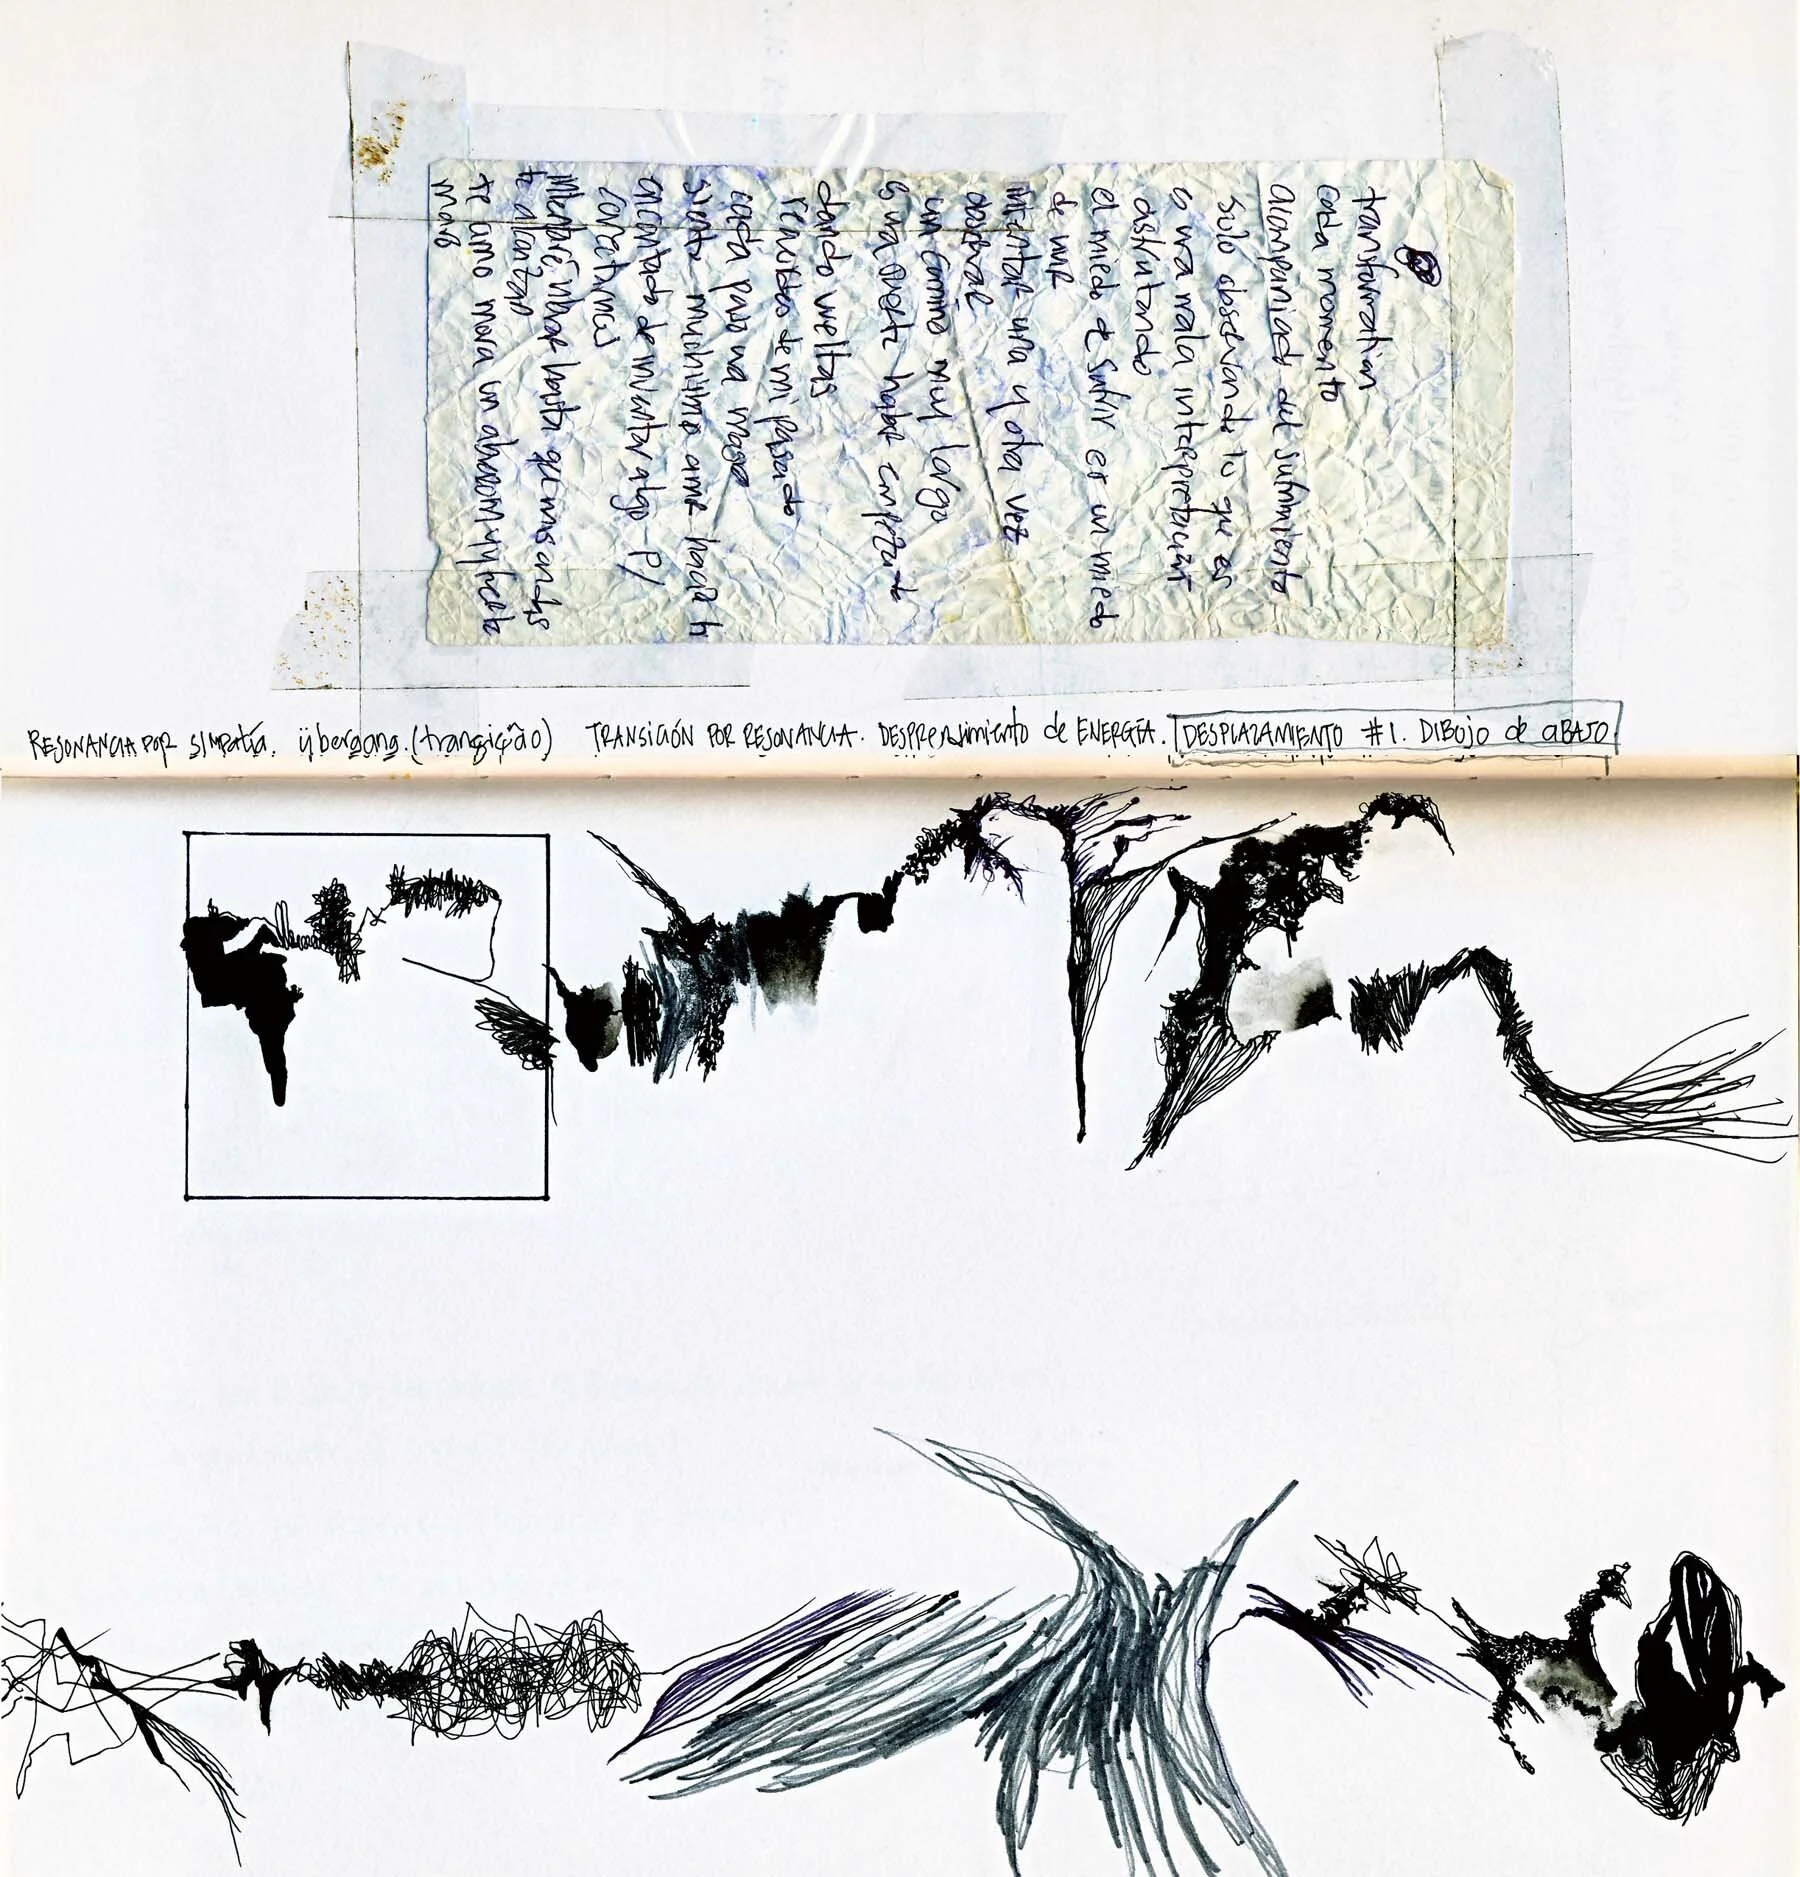 transformation
cada momento
acompaniado del sufrimiento
solo observando lo que es
es una mala interpretación
disfrutando
el miedo de sufrir es un miedo
de mmr
intentar una y otra vez
observar
un camino muy largo
es una suerte haber empezado
dando vueltas
de mi pasado
cada paso una
siento muchísimo amor hacia ti
encantado de invitar algo p/
comernos
nadar hasta que mis
te alcanzar
te amo mara un abrazo muy fuerte
mmb
RESONANCIA POR SIMPATÍA. übergang. (transição) TRANSICIÓN POR RESONANCIA. DESPRENDIMIENTO de ENERGÍA. DESPLAZAMIENTO #1. DIBUJO de ABAJO.